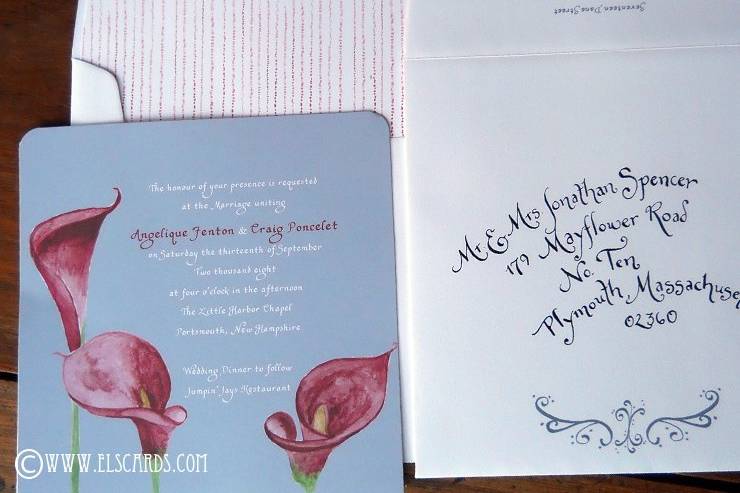 The honour of your presence is requested
at the Marriage uniting
Angelique Fenton & Craig Poncelet
on Saturday the thirteenth of September
Two thousand eight
at four o'clock in the afternoon
The Little Harbor Chapel
Portsmouth, New Hampshire
Wedding Dinner to follow
Jumpin' Jays Restaurant
Seventeen Dane Street
Mr. & Mrs Jonathan Spencer
179 Mayflower Road
No. Ten
Plymouth, Massachuse
02360
©WWW.ELSCARDS.COM